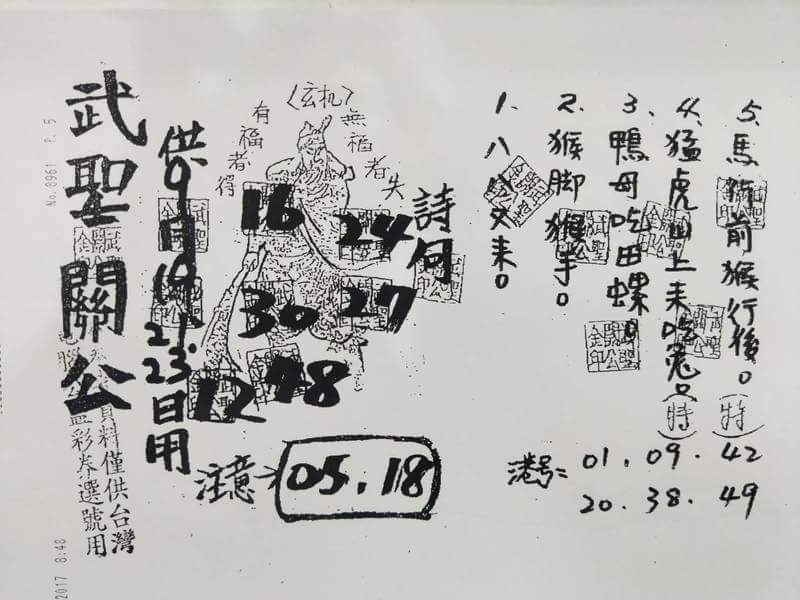 武聖關公
供9月19.21.23日用
〈玄机〉
有福者得
無福者失
16
24
30
27
12
48
注意→
05.18
詩句
1. 八 文来。
2. 猴脚猴手。
3. 鴨母吃田螺。
4. 猛虎山上来吃兔。（特）
5. 馬行前猴行後。（特）
港号=
01. 09. 42
20. 38. 49
資料僅供台灣
彩券選號用
No. 8961 P. 5
2017 8:48